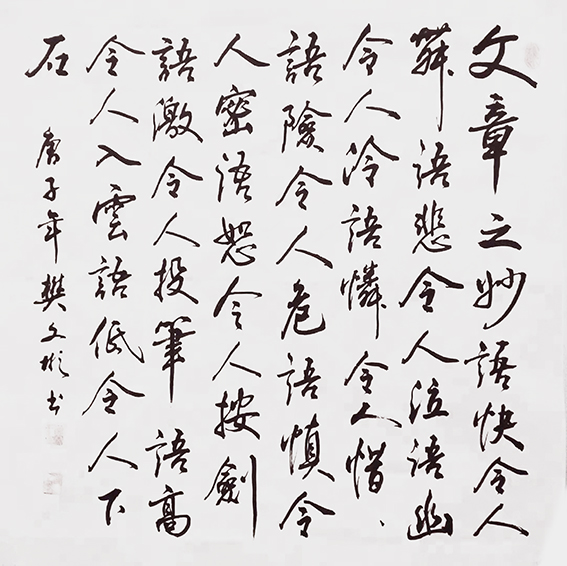 文章之妙語快令人
舞語悲令人泣語幽
令人冷語憐令人惜、
語險令人危語慎令
人密語怒令人按劍
語激令人投筆語高
令人入雲語低令人下
石
庚子年樊文彬书